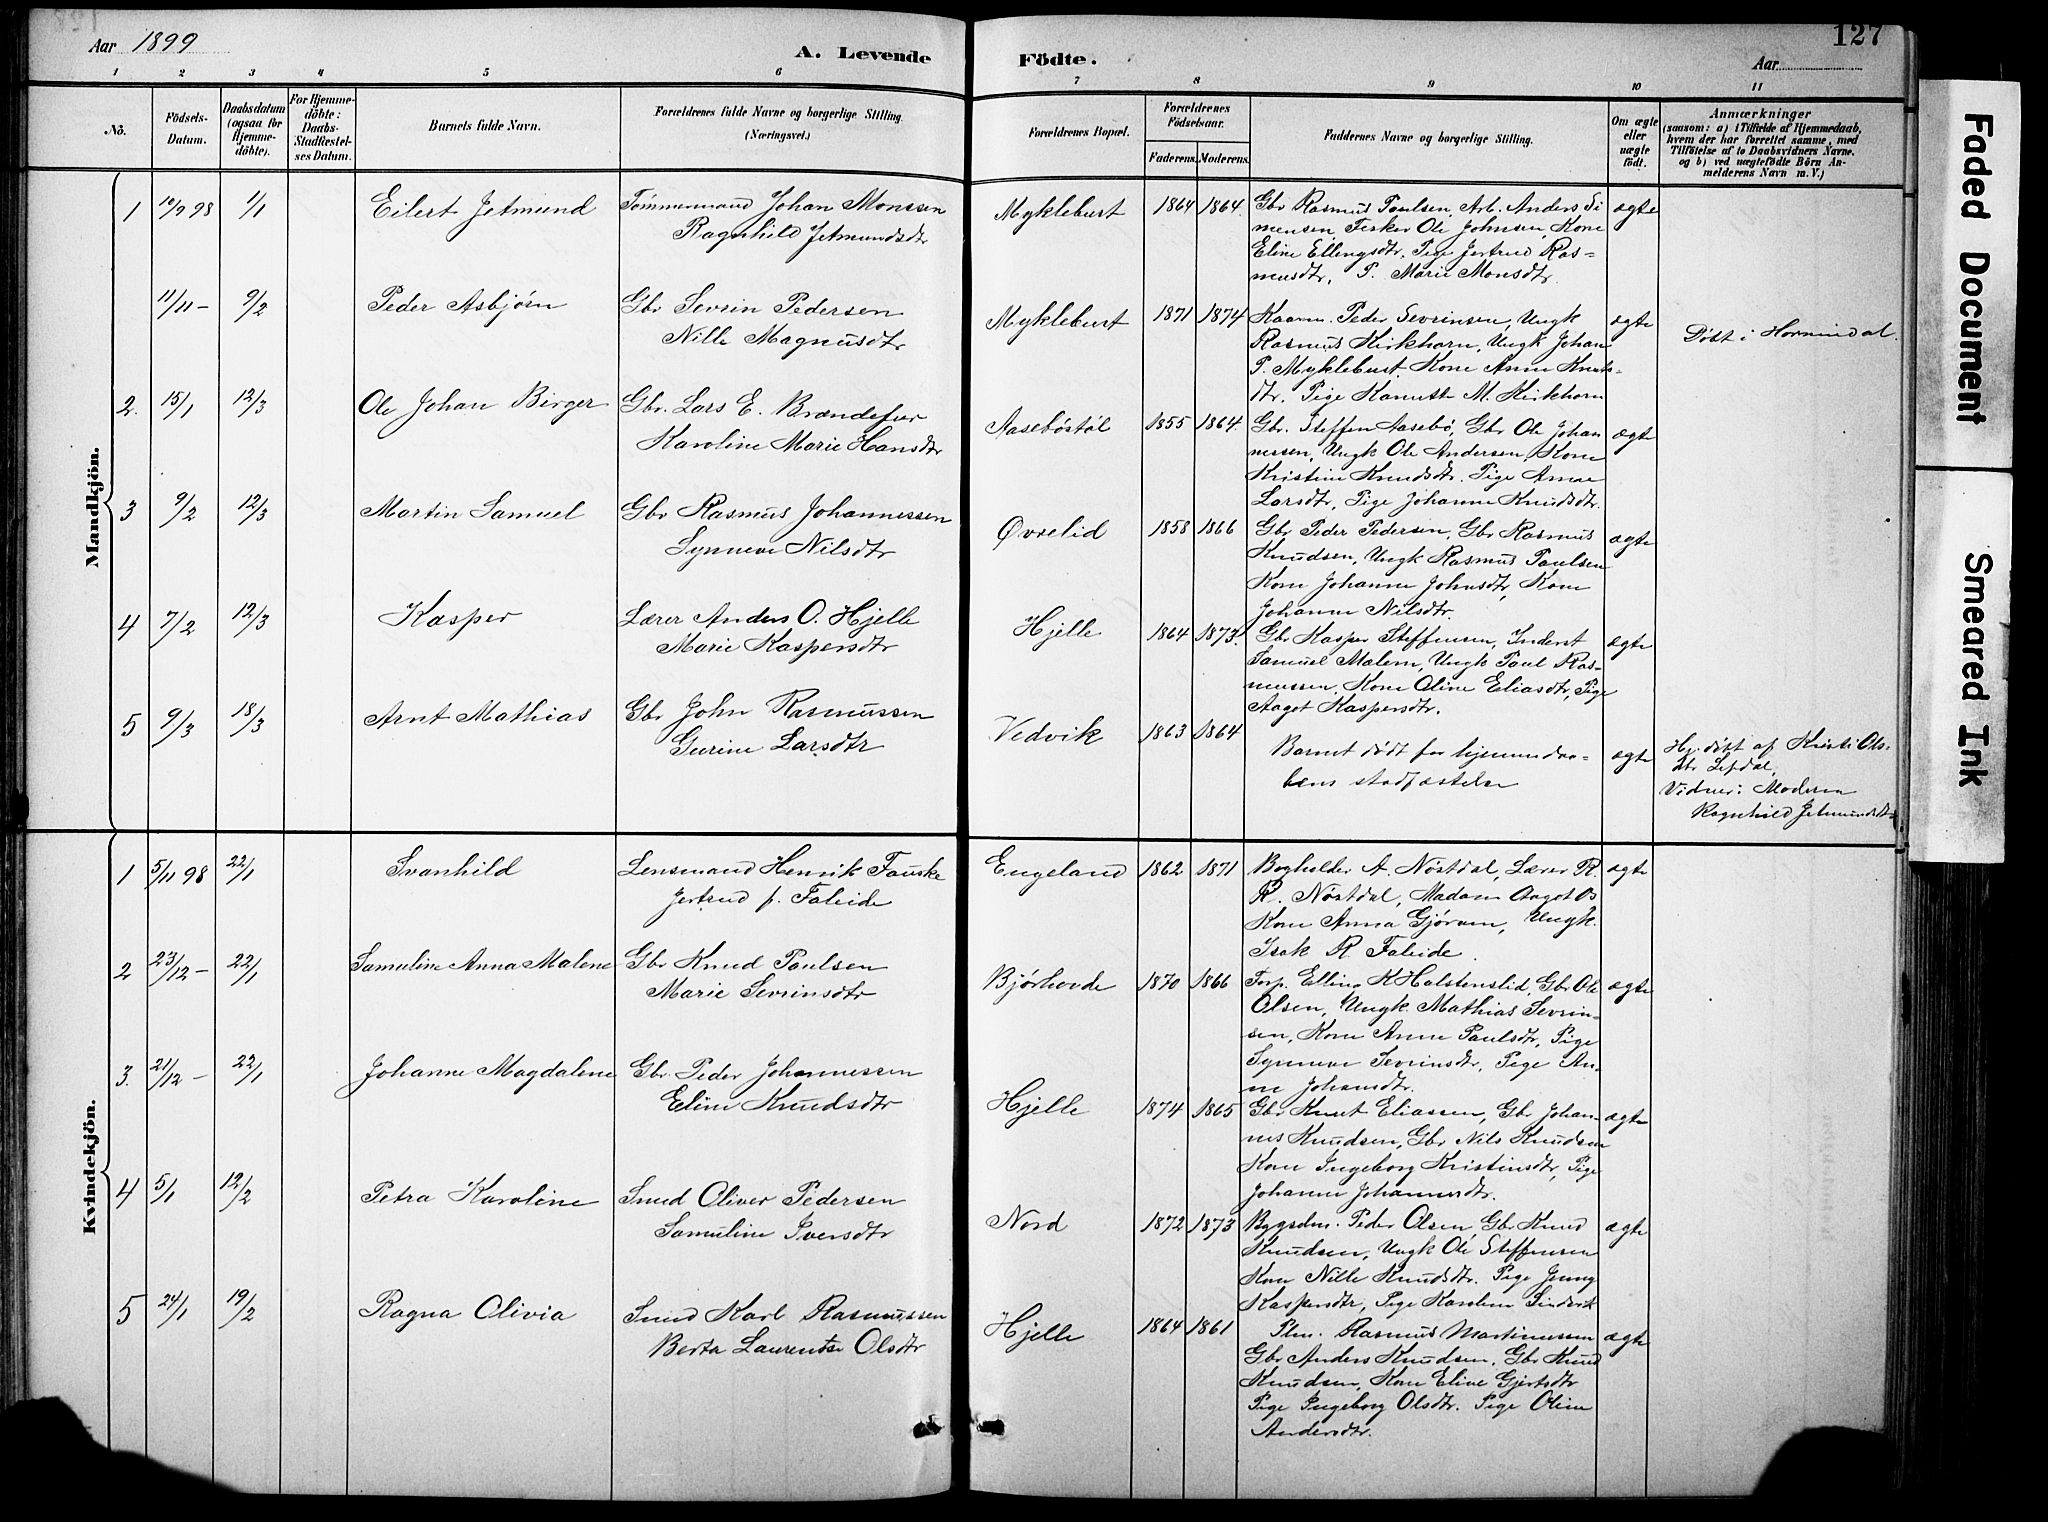 Aar 1899
A. Levende
Födte.
127
Aar
1 2 3 4 5 6 7 8 9 10 11
No.
Födsels-
Datum.
Daabsdatum
(ogsaa for
Hjemme-
döbte).
For Hjemme-
döbte:
Daabs-
Stadfæstel-
ses Datum.
Barnets fulde Navn.
Forældrenes fulde Navne og borgerlige Stilling.
(Næringsvei.)
Forældrenes Bopæl.
Forældrenes
Födselsaar.
Faderens. Moderens.
Faddernes Navne og borgerlige Stilling.
Om ægte
eller
uægte
födt.
Anmærkninger
(saasom: a) i Tilfælde af Hjemmedaab,
hvem der har forrettet samme, med
Tilföielse af to Daabsvidners Navne,
og b) ved uægtefödte Börn An-
melderens Navn m. V.)
Mandkjön.
1 10/9 98 1/1 Eilert Jetmund
Tömmermand Johan Monssen
Ragnhild Jetmundsdtr
Myklebust 1864 1864
Gbr Rasmus Paulsen, Arb. Anders Si
mensen, Fisker Ole Johnsen, Kone
Eline Ellingsdtr, Pige Jertrud Ras-
musdtr, P. Marie Monsdtr.
ægte
11/11 - 9/2 Peder Asbjørn
Gbr Sevrin Pedersen
Nille Magnusdtr
Myklebust 1871 1874
Kaarm. Peder Sevrinsen, Ungk
Rasmus Kirkhorn, Ungk Johan
P. Myklebust, Kone Anne Knuts-
dtr, Pige M. Kirkhorn
ægte
Døbt i Hornindal.
2. 15/1 12/3 Ole Johan Birger
Gbr. Lars E. Brændefur
Karoline Marie Hansdtr
Aasebøstøl 1855 1864
Gbr. Steffen Aasebø, Gbr Ole Johan
nessen, Ungk Ole Andersen, Kone
Kristine Knudsdtr. Pige Anne
Larsdtr, Pige Johanne Knudsdtr.
ægte
3 9/2 12/3 Martin Samuel
Gbr Rasmus Johannessen
Synneve Nilsdtr
Øvrelid 1858 1866
Gbr Peder Pedersen, Gbr Rasmus
Knudsen, Ungk Rasmus Paulsen
Kone Johanne Johnsdtr, Kone
Johanne Nilsdtr.
ægte
4 7/2 12/3 Kasper
Lærer Anders O. Hjelle
Marie Kaspersdtr
Hjelle 1864 1873
Gbr Kasper Steffensen, Inderst
Samuel Malem, Ungk Paul Ras-
mussen, Kone Oline Eliasdtr, Pige
Aagot Kaspersdtr.
ægte
5 9/3 18/3 Arnt Mathias
Gbr John Rasmussen
Gurine Larsdtr
Vedvik 1863 1864
Barnet dødt for hjemmedaa-
bens stadfæstelse
ægte
Hj. døbt af Kristi Ols-
dtr Lefdal,
Vidner: Moderen
Ragnhild Jetmundsdtr
Kvindekjön.
1 5/11 98 22/1 Svanhild
Lensmand Henrik Fauske
Jertrud f. Faleide
Engeland 1862 1871
Bogholder A. Nøstdal, Lærer R.
R. Nøstdal, Madam Aagot Os
Kone Anna Gjørven, Ungk.
Isak R Faleide.
ægte
2 23/12 - 22/1 Samuline Anna Malene
Gbr Knud Paulsen
Marie Sevrinsdtr
Bjørhovde 1870 1866
Forp. Elling K Halstenslid, Gbr Ole
Olsen, Ungk. Mathias Sevrin-
sen, Kone Anne Paulsdtr, Pige
Synneve Sevrinsdtr, Pige An-
ne Johansdtr.
ægte
3. 21/12 - 22/1 Johanne Magdalene
Gbr. Peder Johannessen
Eline Knudsdtr
Hjelle 1874 1865
Gbr Knut Eliassen, Gbr Johan-
nes Knudsen, Gbr Nils Knudsen
Kone Ingeborg Kristinsdtr, Pige
Johanne Johannesdtr.
ægte
4 5/1 12/2 Petra Karoline
Smed Oliver Pedersen
Samuline Iversdtr
Nord 1872 1873
Bygselm. Peder Olsen, Gbr Knud
Knudsen, Ungk Ole Steffensen
Kone Nille Knudsdtr. Pige Jenny
Kaspersdtr, Pige Karoline Sindrik
ægte
5 24/1 19/2 Ragna Olivia
Smed Karl Rasmussen
Berta Laurentse Olsdtr
Hjelle 1864 1861
Plm. Rasmus Martinussen
Gbr Anders Knudsen, Gbr Knud
Knudsen, Kone Eline Gjertsdtr
Pige Ingeborg Olsdtr. Pige Oline
Andersdtr.
ægte
Faded Document
Smeared Ink